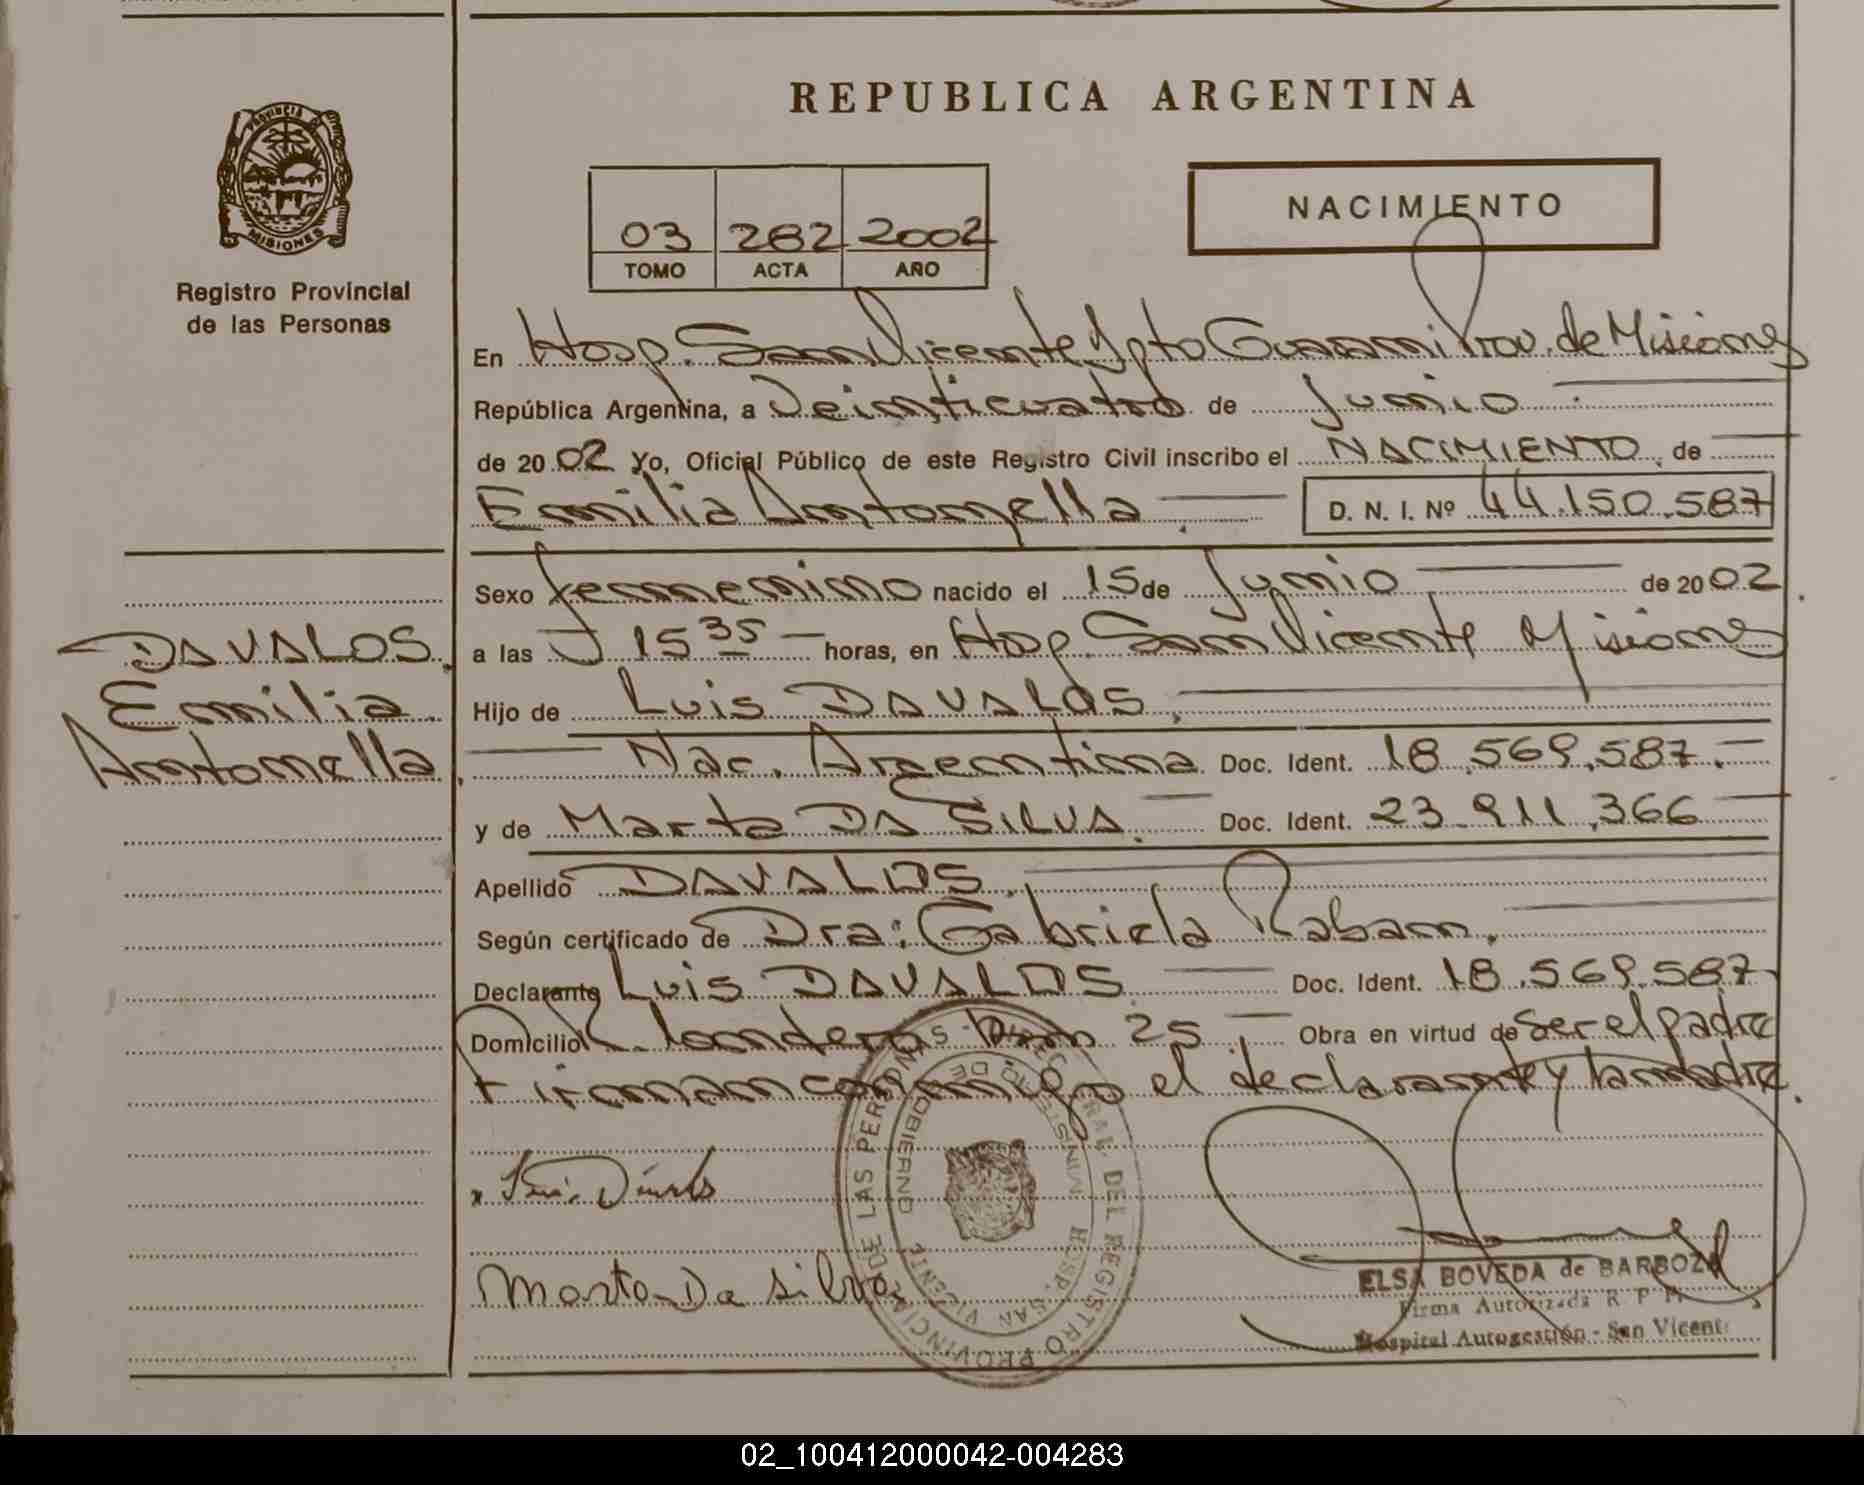 REPUBLICA ARGENTINA
PROVINCIA DE
MISIONES
Registro Provincial
de las Personas
03 282 2002
TOMO ACTA AÑO
NACIMIENTO
En Hosp. San Vicente Dpto Guarani Prov. de Misiones
República Argentina, a Veinticuatro de Junio
de 2002 Yo, Oficial Público de este Registro Civil inscribo el NACIMIENTO de
Emilia Antonella D. N. I. Nº 44.150.587
DAVALOS
Emilia
Antonella
Sexo femenino nacido el 15 de Junio de 2002
a las 15 35 horas, en Hosp San Vicente Misiones
Hijo de Luis DAVALOS
Nac. Argentina Doc. Ident. 18.569.587.
y de Marta DA SILVA. Doc. Ident. 23.911.366
Apellido DAVALOS.
Según certificado de Dra: Gabriela Raban.
Declarante Luis DAVALOS Doc. Ident. 18.569.587
Domicilio km 25 Obra en virtud de Ser el padre
Firman conmigo el declarante y la madre.
x
Marta Da Silva
DIRECCION GENERAL DEL REGISTRO PROVINCIAL DE LAS PERSONAS
MINISTERIO DE GOBIERNO
HOSP. SAN VICENTE
ELSA BOVEDA de BARBOZA
Firma Autorizada R P P
Hospital Autogestión - San Vicente
02_100412000042-004283